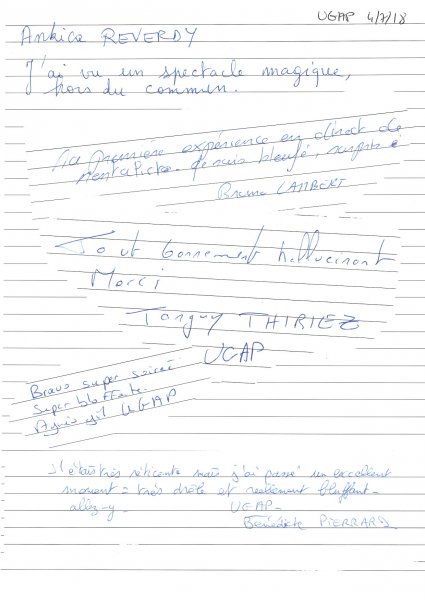 UGAP 4/7/18
REVERDY
J'ai vu un spectacle magique,
hors du commun.
première expérience en direct de
je suis bleufé,
Bruno LAMBERT
Tout bonnement hallucinant
Merci
Tanguy THIRIEZ
UGAP
Bravo super soirée
Super bluffante.
UGAP
J'étais très réticente mais j'ai passé un excellent
moment = très drôle et reellement bluffant_
allez-y_ UGAP_
Bénédicte PIERRARD